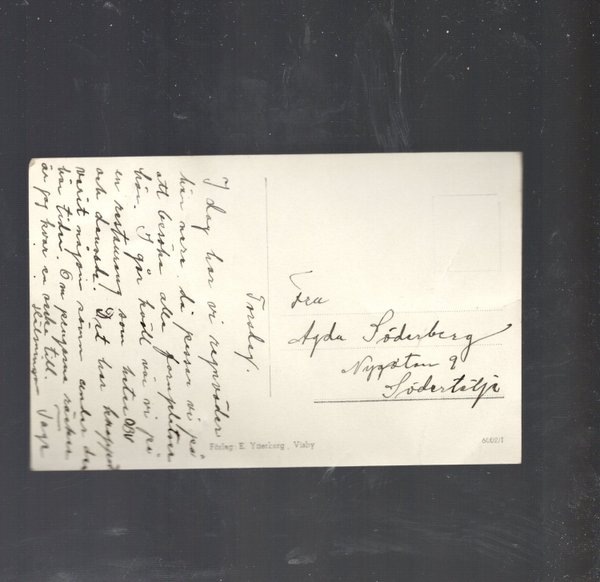 Torsdag.
I dag har vi regnväder
här nere, så passar vi på
att besöka alla
här. I går kväll var vi på
en restaurang som heter DBV
och dansade. Det har knappast
varit någon sömn under den
här tiden. Om pengarna räcker
är jag kvar en vecka till.
Hälsningar
Tage
Fru
Agda Söderberg
Nygatan 9
Södertälje
Förlag: E. Ytterberg, Visby
6002/1